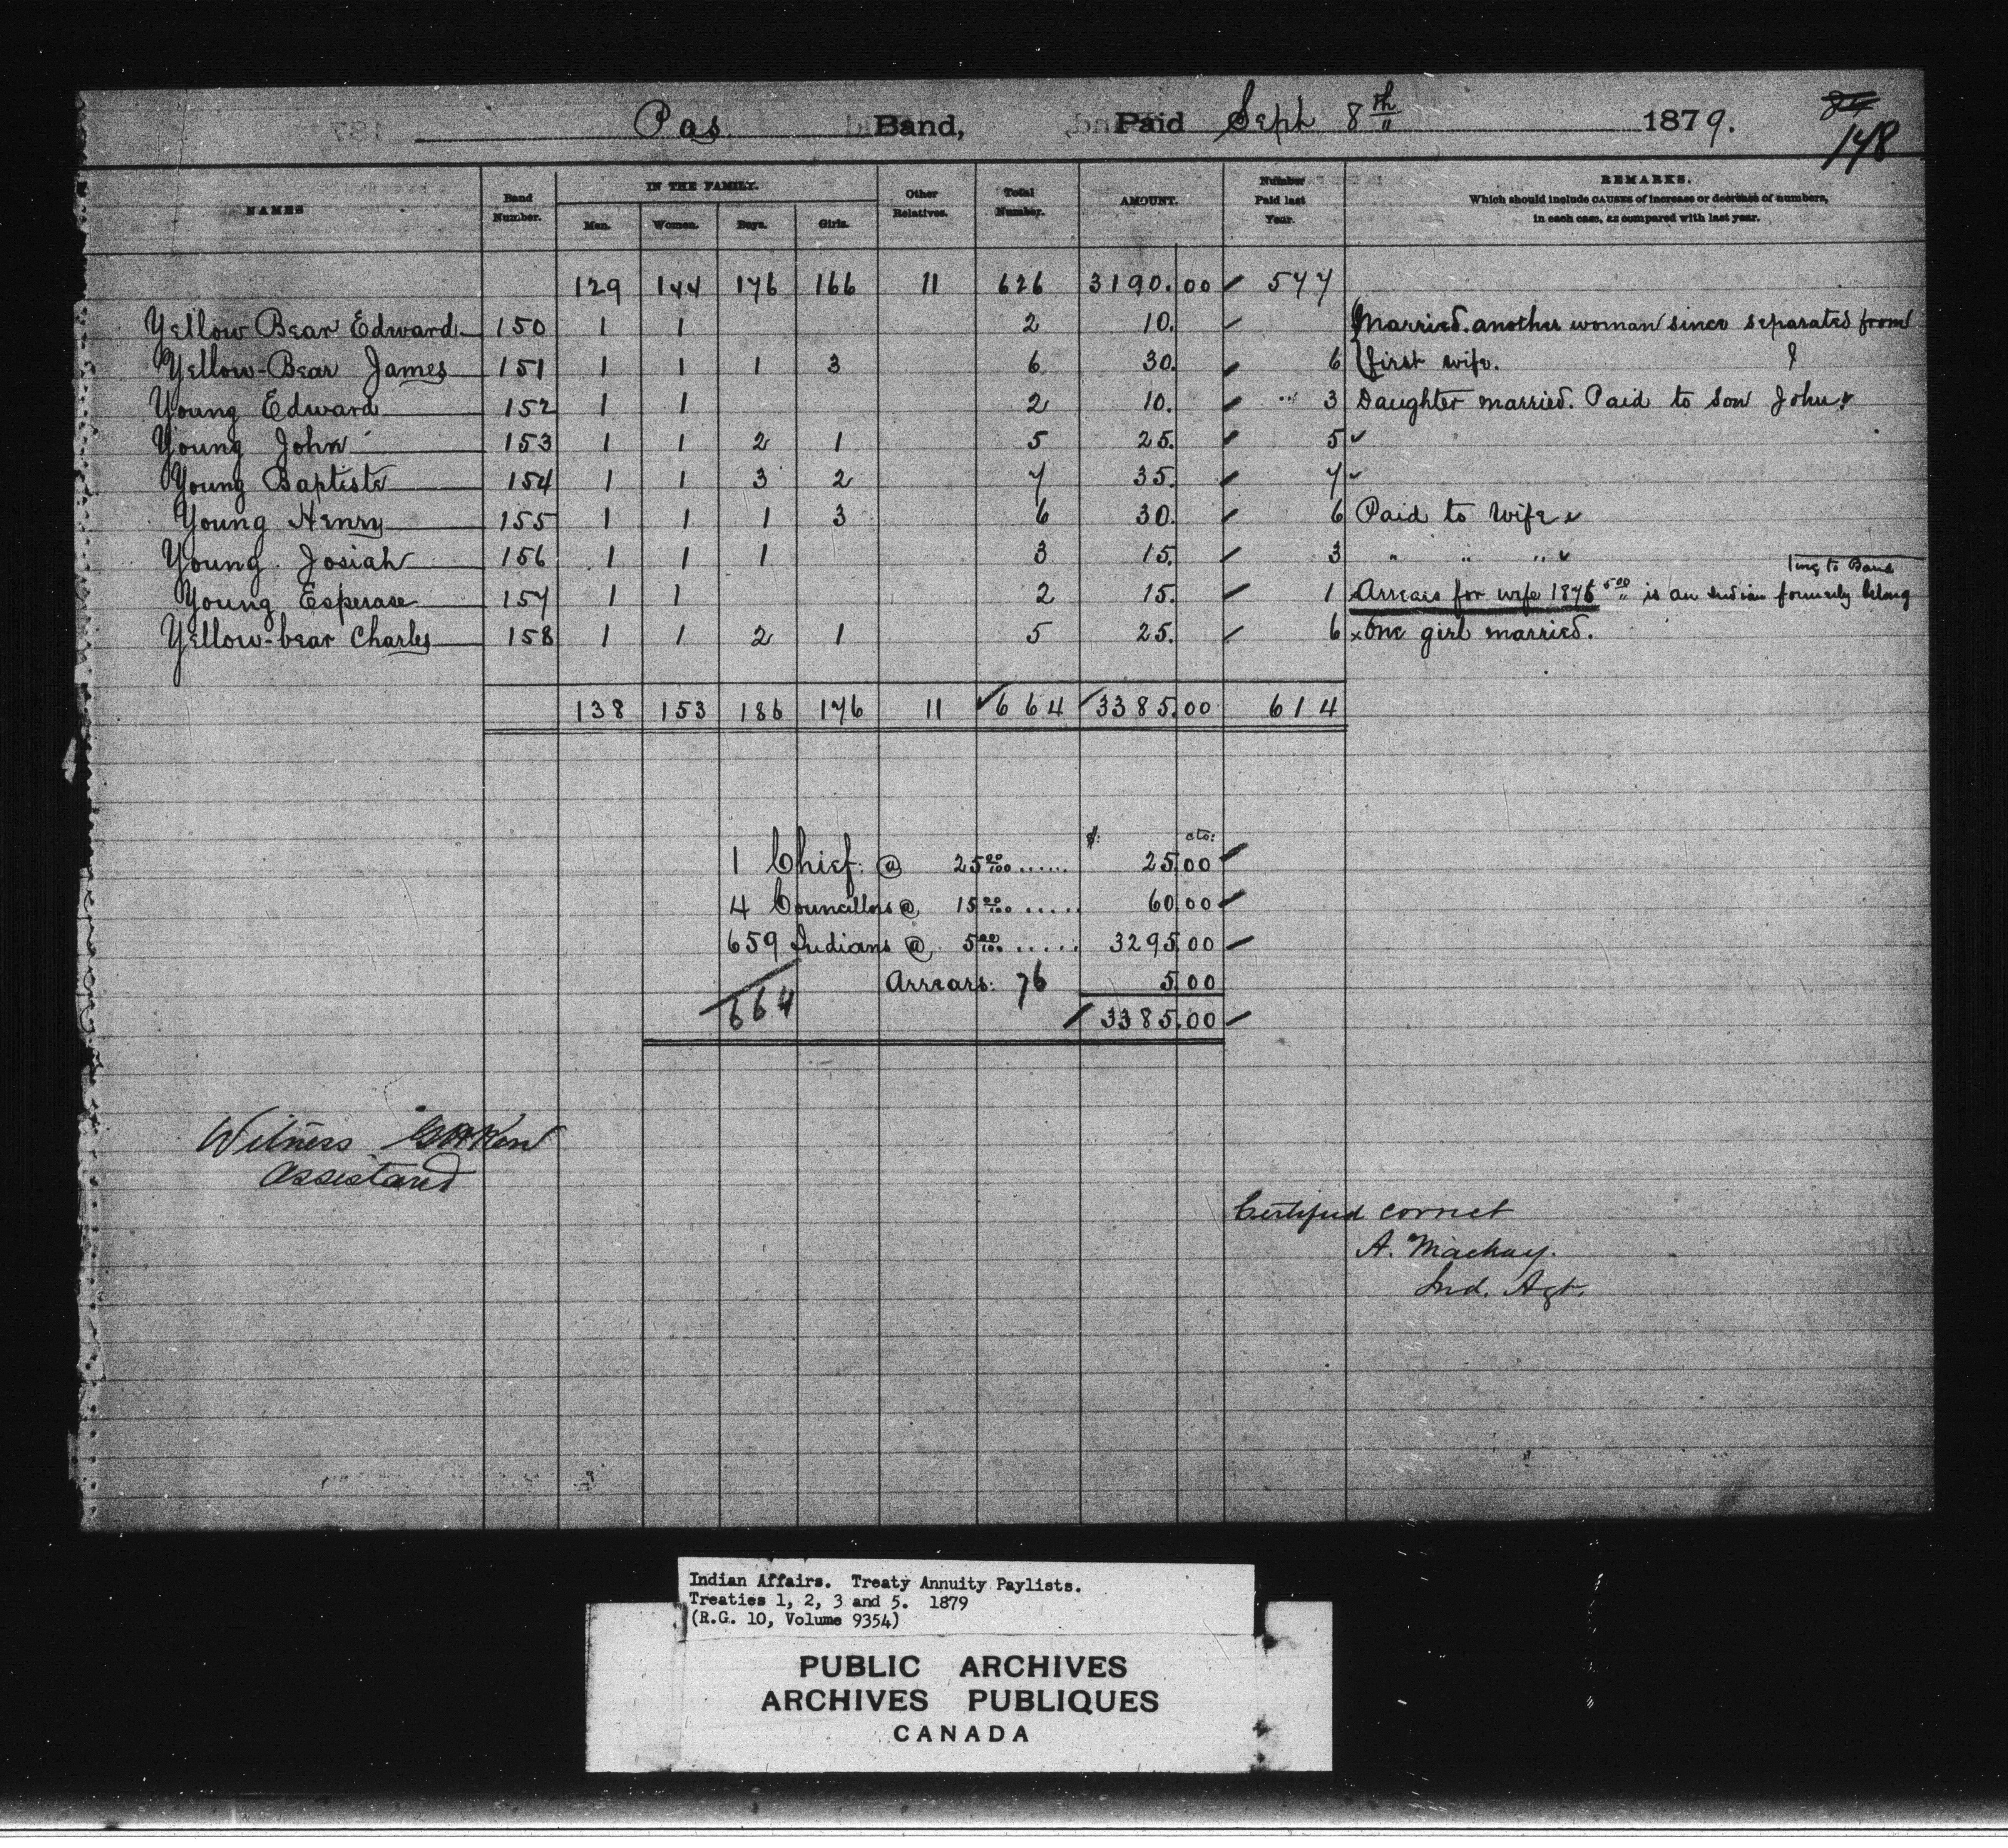 Pas Band, Paid Sept 8th 1879. 84
148
NAMES Band Number. IN THE FAMILY. Men. Women. Boys. Girls. Other Relatives. Total Number. AMOUNT. Number Paid last Year. REMARKS. Which should include CAUSES of increase or decrease of numbers, in each case, as compared with last year.
129 144 176 166 11 626 3190.00 577
Yellow Bear Edward 150 1 1 2 10. Married another woman since separated from
Yellow-Bear James 151 1 1 1 3 6 30. 6 first wife.
Young Edward 152 1 1 2 10. 3 Daughter married. Paid to son John
Young John 153 1 1 2 1 5 25. 5
Young Baptiste 154 1 1 3 2 7 35. 7
Young Henry 155 1 1 1 3 6 30. 6 Paid to Wife
Young Josiah 156 1 1 1 3 15. 3 " " "
Young Esperase 157 1 1 2 15. 1 Arrears for wife 1876 5.00 is an Indian formerly belong
ing to Band
Yellow-bear Charles 158 1 1 2 1 5 25. 6 x One girl married.
138 153 186 176 11 664 3385.00 614
$: cts:
1 Chief @ 25 00/100 ...... 25.00
4 Councillors @ 15 00/100 ..... 60.00
659 Indians @ 5 00/100 ..... 3295.00
Arrears: 76 5.00
664 3385.00
Witness
Assistant
Certified correct
A. Mackay.
Ind. Agt.
Indian Affairs. Treaty Annuity Paylists.
Treaties 1, 2, 3 and 5. 1879
(R.G. 10, Volume 9354)
PUBLIC ARCHIVES
ARCHIVES PUBLIQUES
CANADA